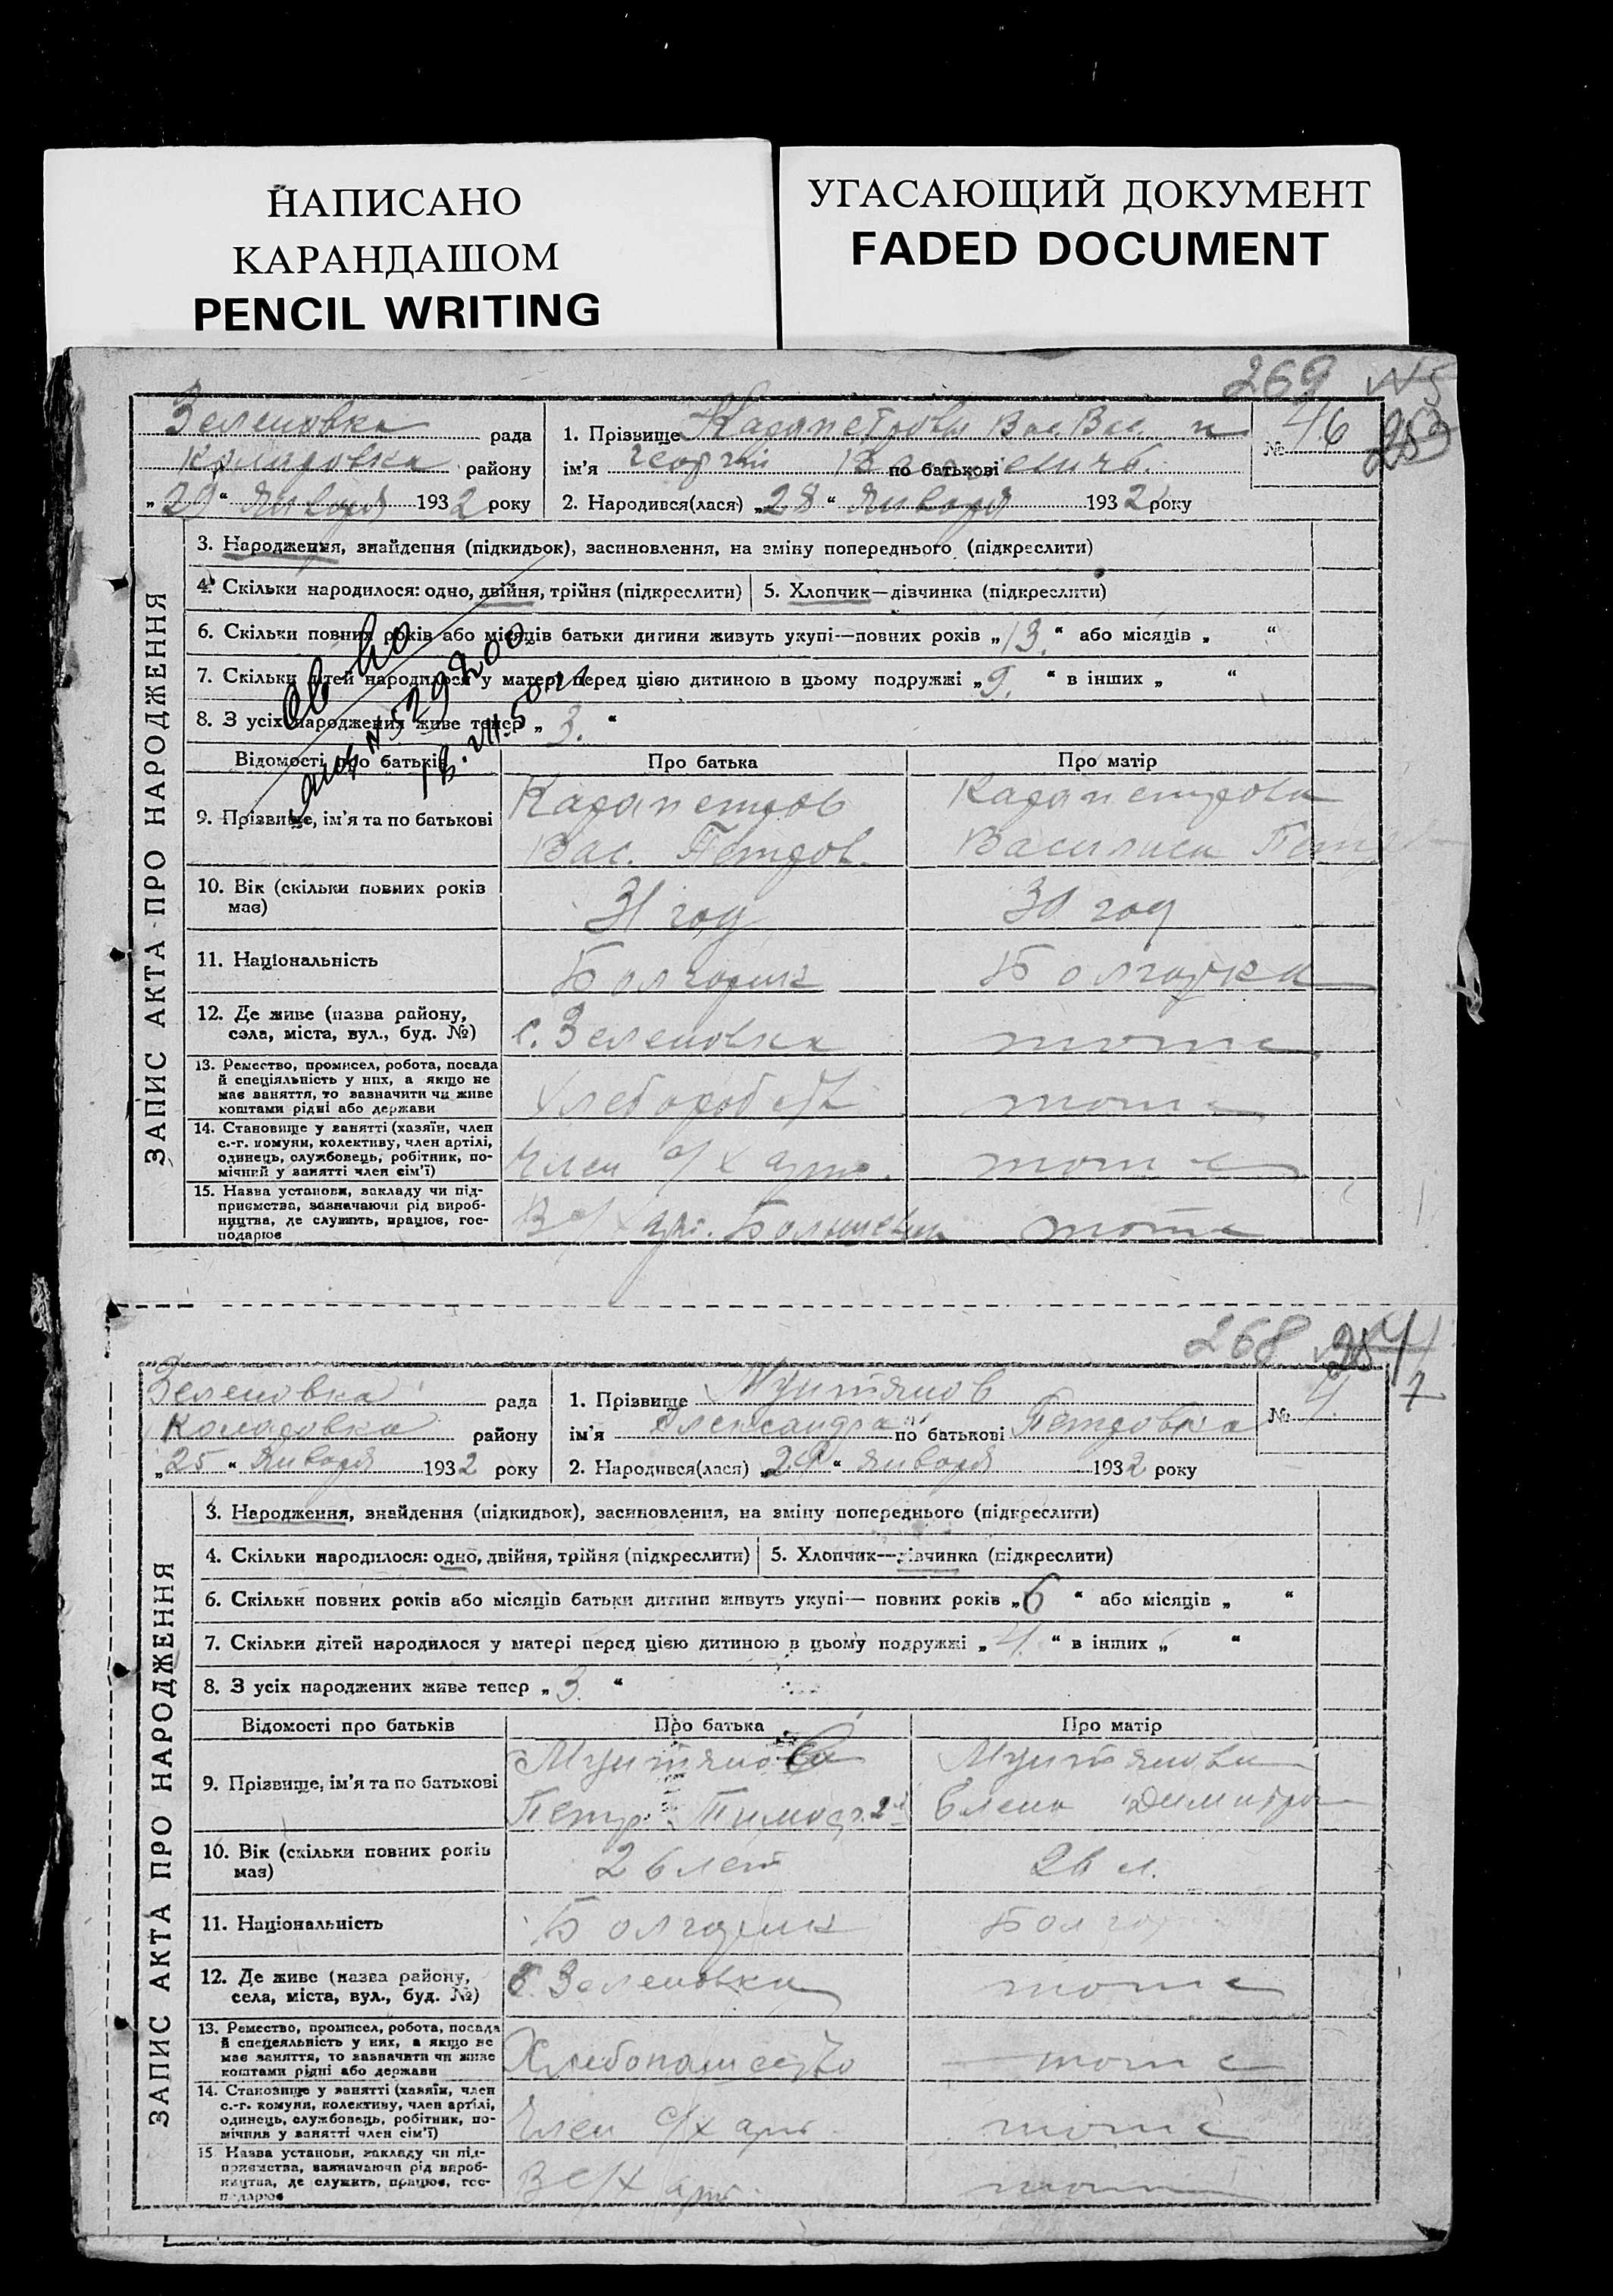 НАПИСАНО
КАРАНДАШОМ
PENCIL WRITING
УГАСАЮЩИЙ ДОКУМЕНТ
FADED DOCUMENT
269
Зеленовка рада
района Коларовка району
„29“ Января 1932 року
1. Прізвище Карапетровы Вас. Вас. и
ім’я Георгий по батькові
2. Народився(лася) „28“ Января 1932 року
№ 4/6
ЗАПИС АКТА ПРО НАРОДЖЕННЯ
3. Народження, знайдення (підкидьок), засиновлення, на зміну попереднього (підкреслити)
4. Скільки народилося: одно, двійня, трійня (підкреслити)
5. Хлопчик—дівчинка (підкреслити)
6. Скільки повних років або місяців батьки дитини живуть укупі—повних років „13.“ або місяців „ “
7. Скільки дітей народилося у матері перед цією дитиною в цьому подружжі „9.“ в інших „ “
8. З усіх народжених живе тепер „3.“
Відомості про батьків
Про батька
Про матір
9. Прізвище, ім’я та по батькові
Карапетров
Вас. Петров.
Карапетрова
Василиса Петр
10. Вік (скільки повних років має)
31 год
30 год
11. Національність
Болгарин
Болгарка
12. Де живе (назва району, села, міста, вул., буд. №)
с. Зеленовка
тоже
13. Ремество, промисел, робота, посада й спеціяльність у них, а якщо не має заняття, то зазначити чи живе коштами рідні або держави
тоже
14. Становище у занятті (хазяїн, член с.-г. комуни, колективу, член артілі, одинець, службовець, робітник, помічний у занятті член сім’ї)
Член с/х арт.
тоже
15. Назва установи, закладу чи підприємства, зазначаючи рід виробництва, де служить, працює, господарює
В с/х арт. Большевик
тоже
268
Зеленовка рада
Коларовка району
„25“ Января 1932 року
1. Прізвище Мунтянов
ім’я Александра по батькові Петровна
2. Народився(лася) „24“ Января 1932 року
№ 4.
ЗАПИС АКТА ПРО НАРОДЖЕННЯ
3. Народження, знайдення (підкидьок), засиновлення, на зміну попереднього (підкреслити)
4. Скільки народилося: одно, двійня, трійня (підкреслити)
5. Хлопчик—дівчинка (підкреслити)
6. Скільки повних років або місяців батьки дитини живуть укупі— повних років „6“ або місяців „ “
7. Скільки дітей народилося у матері перед цією дитиною в цьому подружжі „4.“ в інших „ “
8. З усіх народжених живе тепер „3.“
Відомості про батьків
Про батька
Про матір
9. Прізвище, ім’я та по батькові
Мунтянов
Петр
Мунтянова
Елена Димитро
10. Вік (скільки повних років має)
26 лет
26 л.
11. Національність
Болгарин
Болгар
12. Де живе (назва району, села, міста, вул., буд. №)
с. Зеленовка
тоже
13. Ремество, промисел, робота, посада й спецеяльність у них, а якщо не має заняття, то зазначити чи живе коштами рідні або держави
Хлебопашество
тоже
14. Становище у занятті (хазяїн, член с.-г. комуни, колективу, член артілі, одинець, службовець, робітник, помічник у занятті член сім’ї)
Член с/х арт
тоже
15 Назва установи, закладу чи підприємства, зазначаючи рід виробництва, де служить, працює, господарює
В с/х арт.
тоже